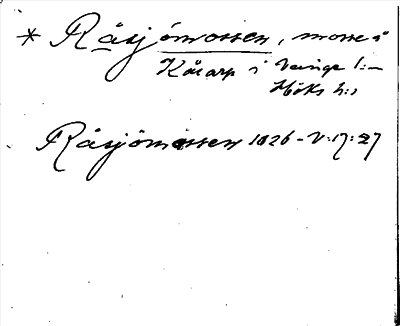 * Råsjömossen, mosse i
Kårarp i Veinge l:–
Höks h:s
Råsjömossen 1026 – V:17:27